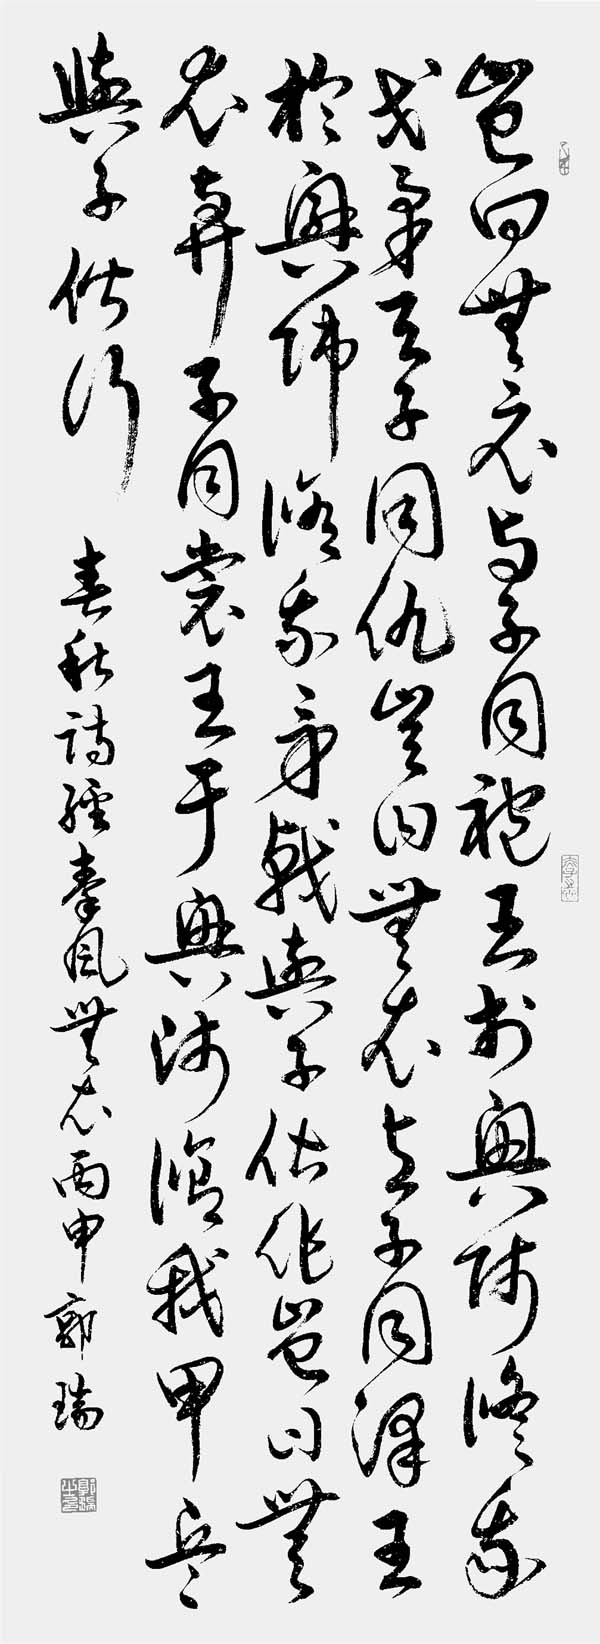 豈曰無衣与子同袍王於興師修我
戈矛与子同仇豈曰無衣与子同澤王
於興師修我矛戟與子偕作豈曰無
衣與子同裳王于興師修我甲兵
與子偕行 春秋詩經秦風無衣丙申郭瑞